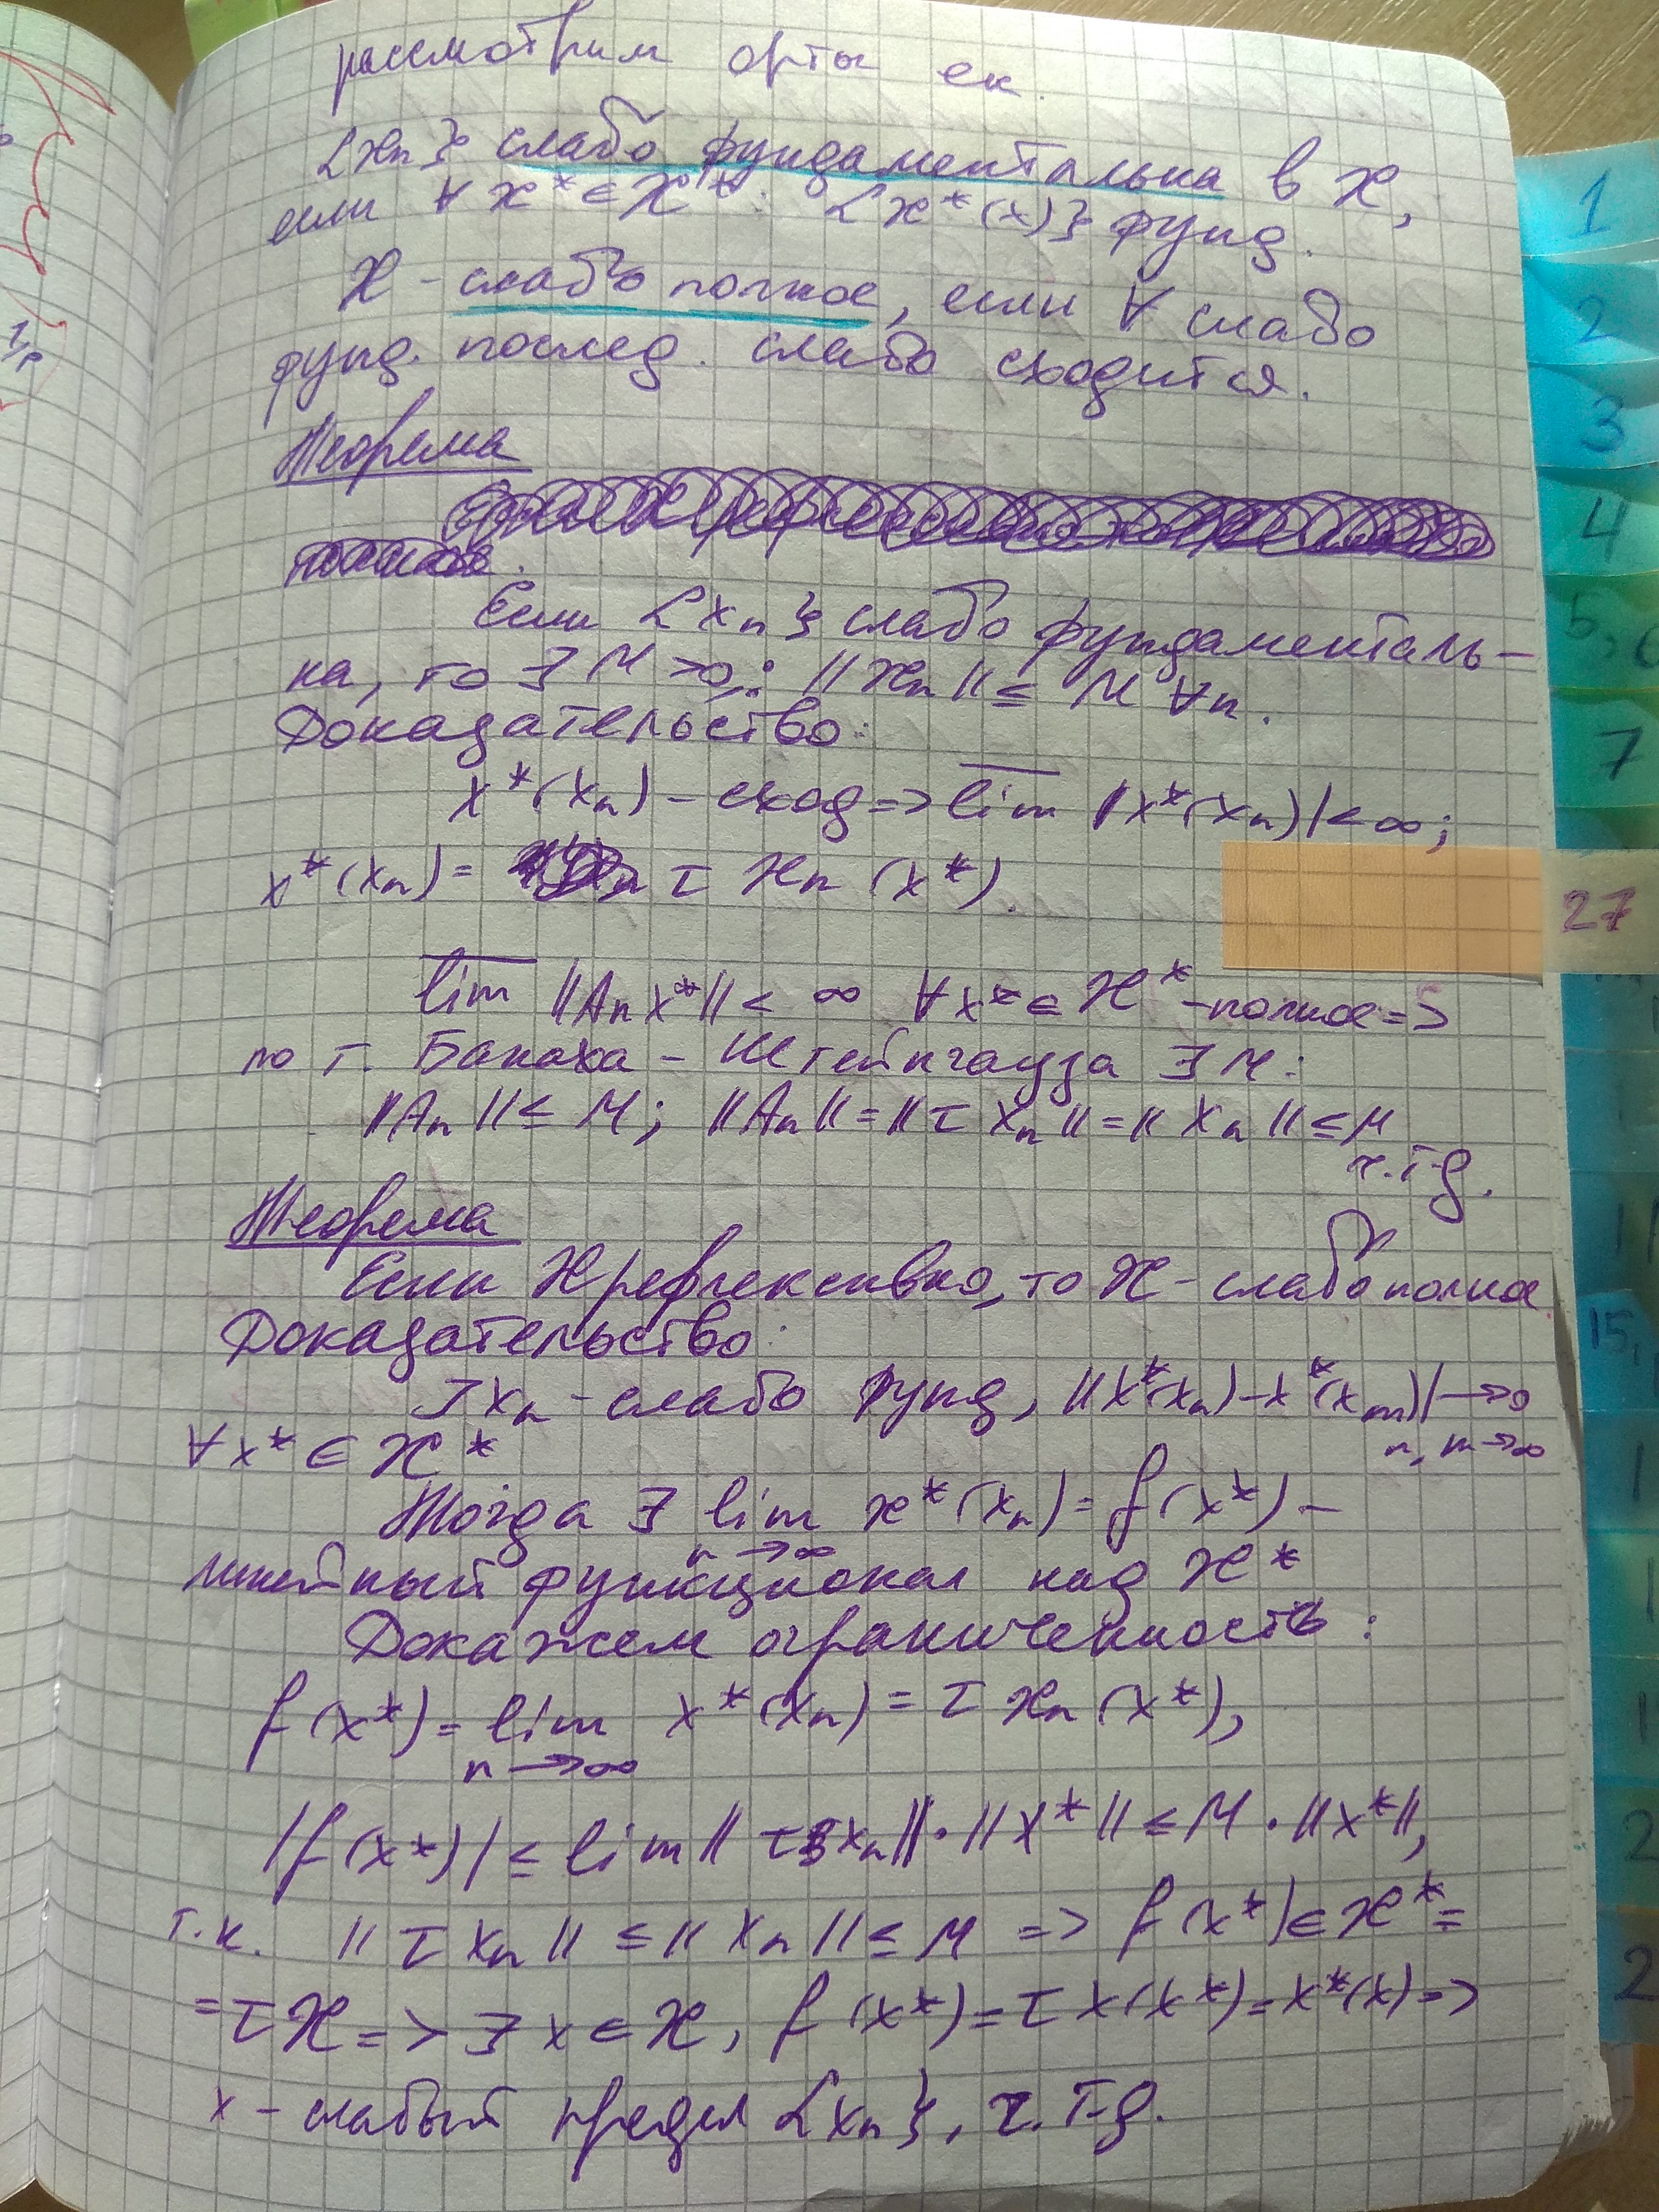 рассмотрим орты eк.
{xn} слабо фундаментальна в X,
если ∀ x* ∈ X*: {x*(x)} фунд.
X - слабо полное, если ∀ слабо
фунд. послед. слабо сходится.
Теорема
Если {xn} слабо фундаменталь-
на, то ∃ M >0,: ||xn|| ≤ M ∀n.
Доказательство:
x*(xn) - сход => lim |x*(xn)| < ∞;
x*(xn) = τ xn (x*).
27
lim ||An x*|| < ∞ ∀x* ∈ X* - полное =>
по т. Банаха - Штейнгауза ∃ M:
||An|| ≤ M; ||An|| = ||τ xn|| = ||xn|| ≤ M
ч.т.д.
Теорема
Если X рефлексивно, то X - слабо полное
Доказательство:
∃ xn - слабо фунд, ||x*(xn) - x*(xm)| → 0
n, m → ∞
∀x* ∈ X*
Тогда ∃ lim x*(xn) = f(x*) -
n → ∞
линейный функционал над X*
Докажем ограниченность:
f(x*) = lim x*(xn) = τ xn (x*),
n → ∞
|f(x*)| ≤ lim || τ xn|| · ||x*|| ≤ M · ||x*||,
т.к. || τ xn || ≤ || xn || ≤ M => f(x*) ∈ X* =
= τ X => ∃ x ∈ X, f(x*) = τ x(x*) = x*(x) =>
x - слабый предел {xn}, ч.т.д.
1
2
3
4
5, 6
7
15,